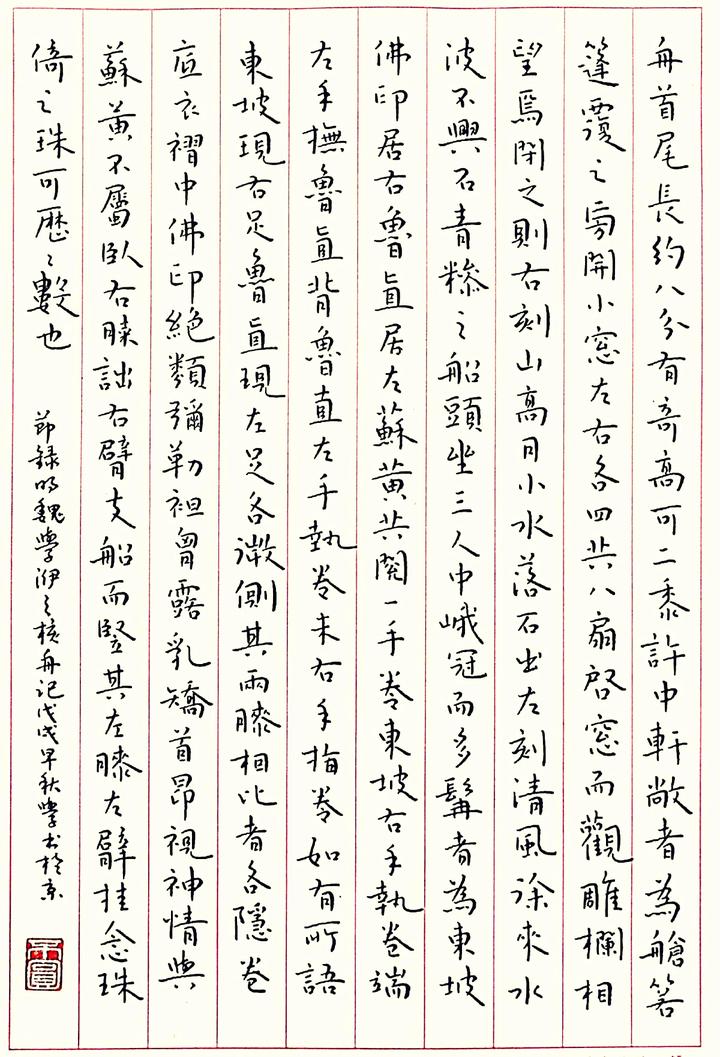 舟首尾長約八分有奇高可二黍許中軒敞者為艙箬
篷覆之旁開小窓左右各四共八扇啓窓而觀雕欄相
望焉閉之則右刻山高月小水落石出左刻清風徐來水
波不興石青糝之船頭坐三人中峨冠而多髯者為東坡
佛印居右魯直居左蘇黃共閱一手卷東坡右手執卷端
左手撫魯直背魯直左手執卷末右手指卷如有所語
東坡現右足魯直現左足各微側其兩膝相比者各隱卷
底衣褶中佛印絕類彌勒袒胷露乳矯首昂視神情與
蘇黃不屬臥右膝詘右臂支船而豎其左膝左臂挂念珠
倚之珠可歷〻數也
節錄明魏學洢之核舟記戊戌早秋學書於京